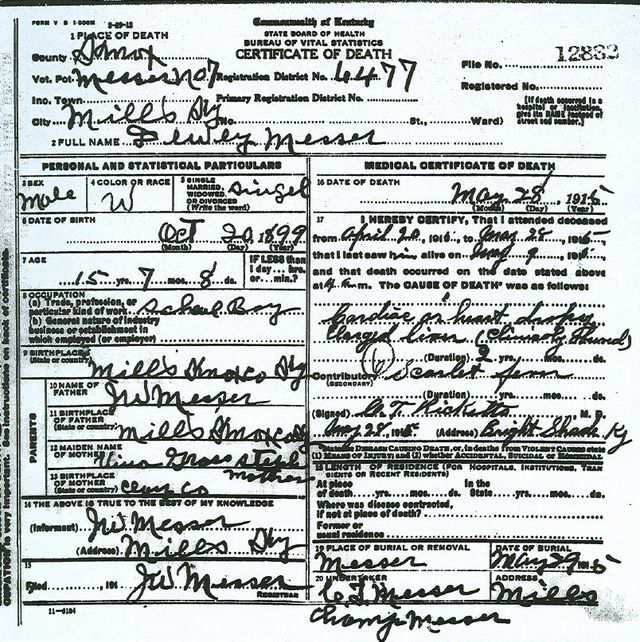 FORM V S 1-500M 3-29-12
Commonwealth of Kentucky
STATE BOARD OF HEALTH
BUREAU OF VITAL STATISTICS
CERTIFICATE OF DEATH
1 PLACE OF DEATH
County Knox
Vot. Pct. Messer No 7 Registration District No. 6477
File No. 12832
Registered No.
Inc. Town Primary Registration District No.
City Mills Ky No. St., Ward)
[If death occurred in a hospital or institution, give its NAME instead of street and number.]
2 FULL NAME Dewey Messer
PERSONAL AND STATISTICAL PARTICULARS
3 SEX Male
4 COLOR OR RACE W
5 SINGLE, MARRIED, WIDOWED OR DIVORCED (Write the word) Singel
6 DATE OF BIRTH
Oct 20, 1899
(Month) (Day) (Year)
7 AGE
15 yrs. 7 mos. 8 ds.
IF LESS than 1 day... hrs. or... min.?
8 OCCUPATION
(a) Trade, profession, or particular kind of work School Boy
(b) General nature of industry business or establishment in which employed (or employer)
9 BIRTHPLACE
(State or country) Mills Knox co Ky
PARENTS
10 NAME OF FATHER JW Messer
11 BIRTHPLACE OF FATHER (State or country) Mills Knox co Ky
12 MAIDEN NAME OF MOTHER Gross step Mother
13 BIRTHPLACE OF MOTHER (State or country) Clay co
14 THE ABOVE IS TRUE TO THE BEST OF MY KNOWLEDGE
(Informant) JW Messer
(Address) Mills Ky
15
Filed, 191 JW Messer
REGISTRAR
11-3184
MEDICAL CERTIFICATE OF DEATH
16 DATE OF DEATH
May 28, 1915
(Month) (Day) (Year)
17 I HEREBY CERTIFY, That I attended deceased
from April 20, 1915, to May 28 1915
that I last saw him alive on May 9 1915
and that death occurred on the date stated above
at m. The CAUSE OF DEATH was as follows:
Cardiac or heart dropsy
liver
(Duration) 2 yrs. mos. ds.
Contributory Scarlet fever
(SECONDARY)
(Duration) yrs. mos. ds.
(Signed) T. Ricketts M. D.
May 28, 1915 (Address) Bright Shade Ky
State the DISEASE CAUSING DEATH, or, in deaths from VIOLENT CAUSES state (1) MEANS OF INJURY; and (2) whether ACCIDENTAL, SUICIDAL or HOMICIDAL
18 LENGTH OF RESIDENCE (FOR HOSPITALS, INSTITUTIONS, TRANSIENTS OR RECENT RESIDENTS)
At place of death yrs. mos. ds. In the State yrs. mos. ds.
Where was disease contracted, if not at place of death?
Former or usual residence
19 PLACE OF BURIAL OR REMOVAL Messer
DATE OF BURIAL May 29 1915
20 UNDERTAKER Messer
ADDRESS Mills
Champ Messer